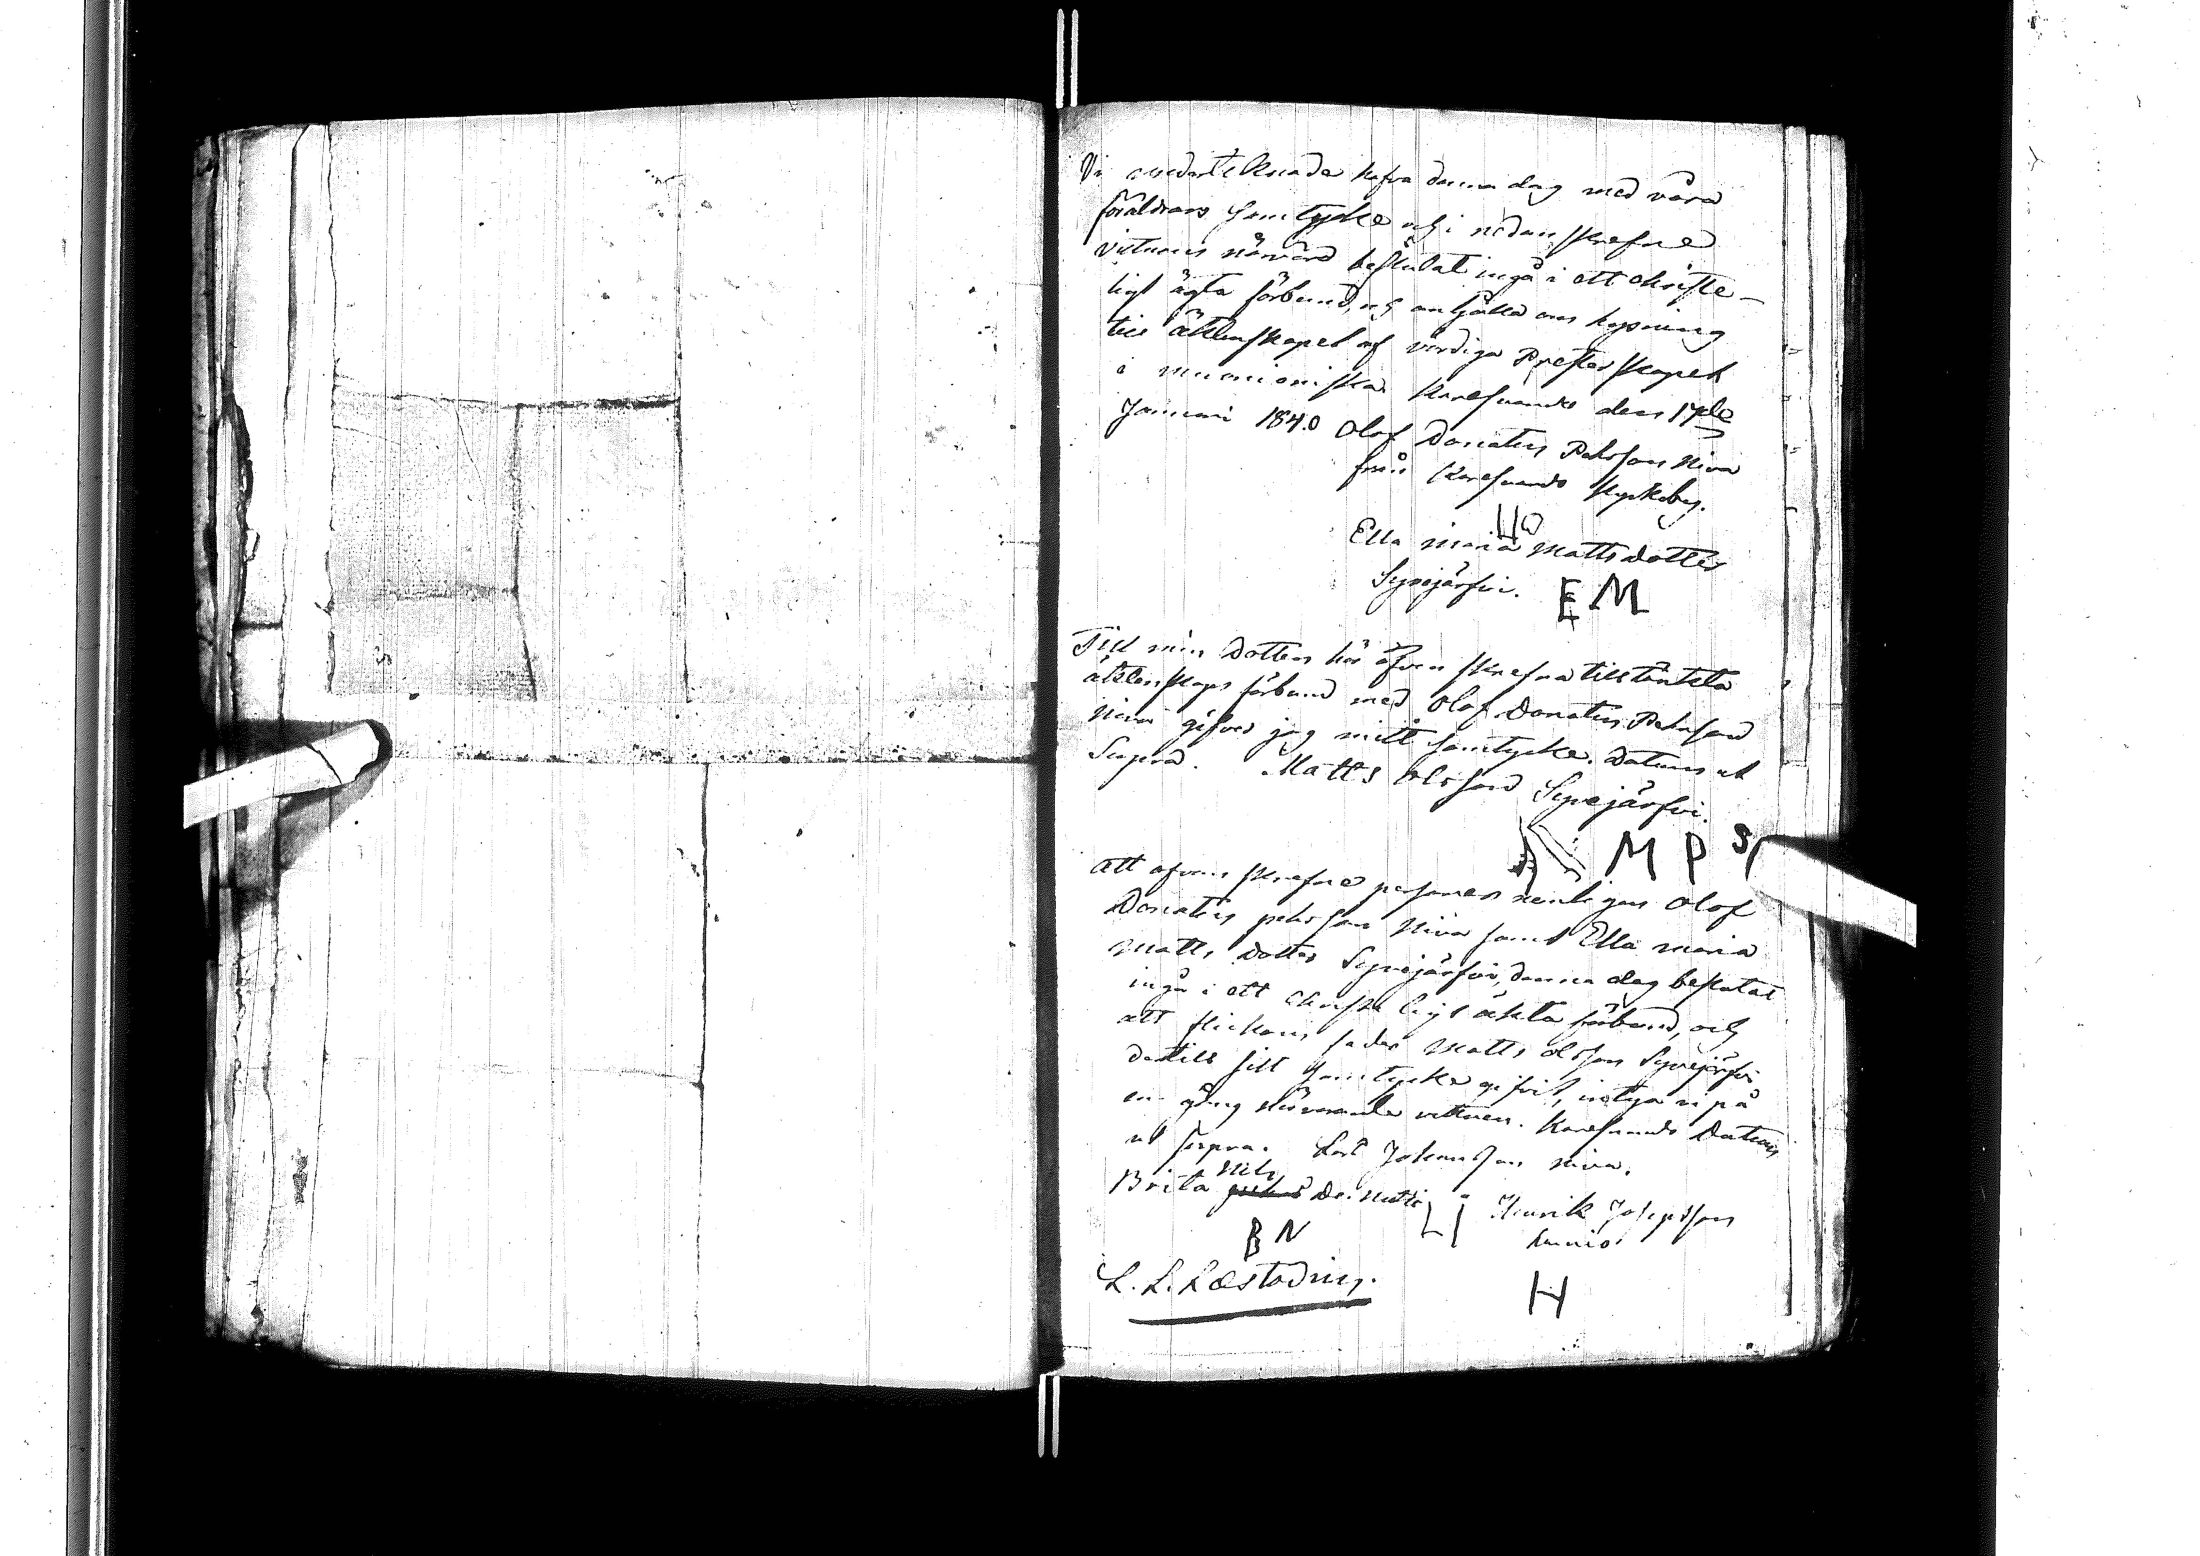 Vi underteknade hafva denna dag med våra
föräldrars samtycke och i nedanskrefned
vittnens närvaro beslutat ingå i ett christe-
ligt ägta förbund, och anhålla om lysning
till äktenskapet af verdiga Presterskapet
i muonioniska Karesuando den 17de
Januari 1840 Olof Donatus Pehrsson Niva
från Karesuando kyrkoby.
HO
Ella maria Mattsdotter
Syvejärfvi. EM
Till min Dotters här ofvan skrefna tilltänkta
äktenskaps förbund med Olof Donatus Pehrsson
Niva gifver jag mitt samtycke. Datum ut
Supra. Matts Olsson Syvejärfvi.
M P S
Att ofvan skrefne personer nemligen Olof
Donatus pehrsson Niva samt Ella maria
Matts Dotter Syvejärfvi, denna dag beslutat
ingå i ett christe ligt äkta förbund, och
att flickans fader Matts olsson Syvejärfvi
dertill sitt samtycke gifvit, intyga vi på
en gång närvarande vittnen. Karesuando Datum
ut supra. Lars Johansson Niva.
Brita Nils Dr: Mutka LJ Henrik Josepsson
Lannio
BN
H
L. L. Læstadius.